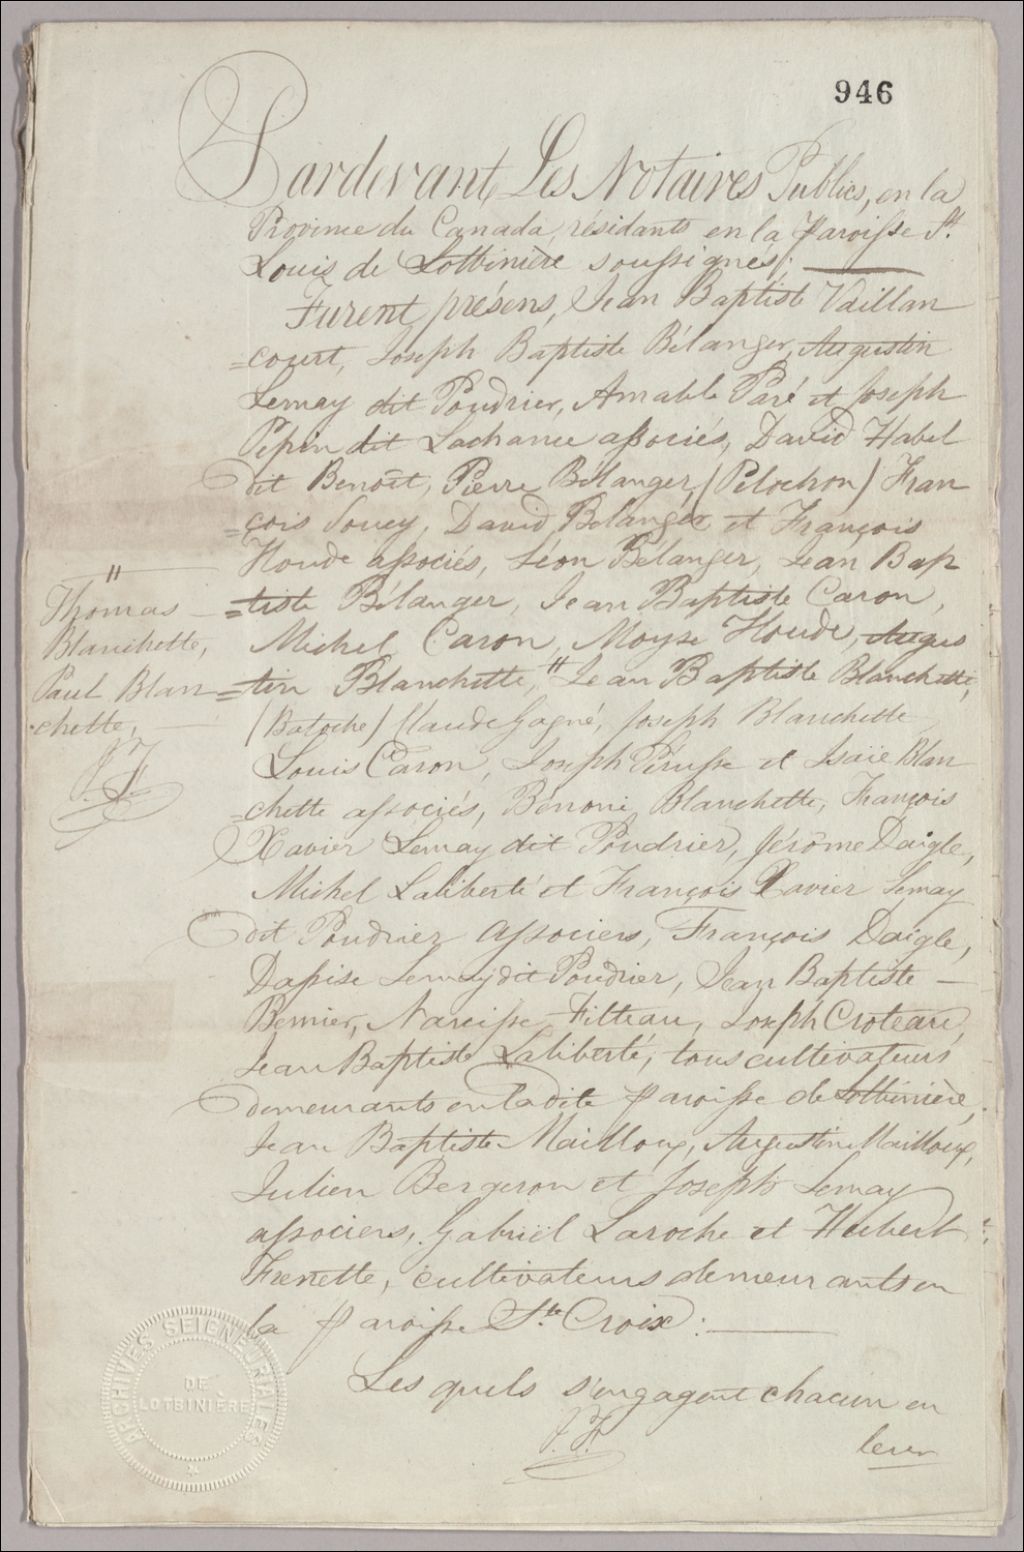 946
Pardevant Les Notaires Publics, en la
Province du Canada, résidants en la paroisse St.
Louis de Lotbinière soussignés;
Furent présens, Jean Baptiste Vaillan
=court, Joseph Baptiste Bélanger, Augustin
Lemay dit Poudrier, Amable Paré et Joseph
Pepin dit Lachance associés, David Habel
dit Benoît, Pierre Bélanger, (Pelochon) Fran
=çois Soucy, David Bélanger et François
Houde associés, Léon Bélanger, Jean Bap
=tiste Bélanger, Jean Baptiste Caron,
Michel Caron, Moyse Houde, Augus
=tin Blanchette, " Jean Baptiste Blanchette,
(Batoche) Claude Gagné, Joseph Blanchette
Louis Caron, Joseph Pérusse et Isaïe Blan
=chette associés, Bénoni Blanchette, François
Xavier Lemay dit Poudrier, Jérôme Daigle,
Michel Laliberté et François Xavier Lemay
dit Poudrier associers, François Daigle,
Lemay dit Poudrier, Jean Baptiste
Bernier, Narcisse Filteau, Joseph Croteau,
Jean Baptiste Laliberté, tous cultivateurs
demeurants en ladite paroisse de Lotbinière,
Jean Baptiste Mailloux, Augustin Mailloux,
Julien Bergeron et Joseph Lemay
associers, Gabriël Laroche et Hubert
Frenette, cultivateurs demeurants en
la paroisse Ste. Croix:
Les quels s'engagent chacun en
J. F.
leur
"
Thomas
Blanchette,
Paul Blan
=chette,
J. F.
ARCHIVES SEIGNEURIALES
DE
LOTBINIÈRE